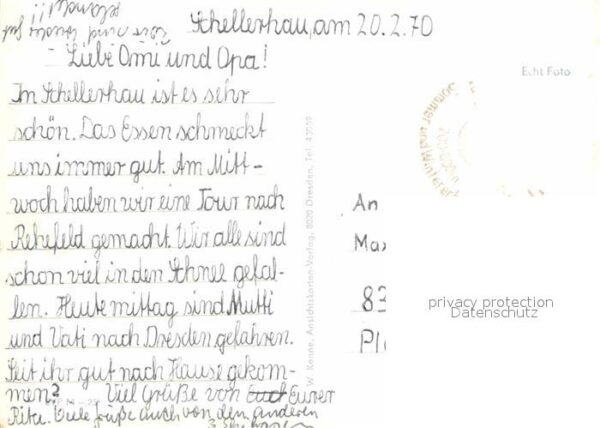 Schellerhau, am 20.2.70
Liebe Omi und Opa!
In Schellerhau ist es sehr
schön. Das Essen schmeckt
uns immer gut. Am Mitt-
woch haben wir eine Tour nach
Rehefeld gemacht. Wir alle sind
schon viel in den Schnee gefal-
len. Heute mittag sind Mutti
und Vati nach Dresden gefahren.
Seit ihr gut nach Hause gekom-
men? Viel Grüße von Euch Eurer
Rita. Viele Grüße auch von den anderen
Echt Foto
W. Kenne, Ansichtskarten-Verlag, 8020 Dresden, Tel. 43059
An
Max
83
privacy protection
Datenschutz